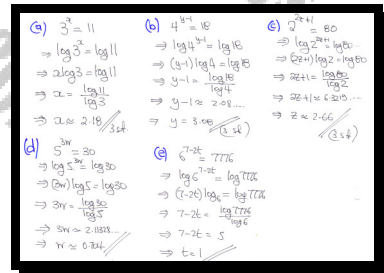 (a) 3^x = 11
⇒ log 3^x = log 11
⇒ x log 3 = log 11
⇒ x = log 11 / log 3
⇒ x ≈ 2.18 3 sf.
(b) 4^(y-1) = 18
⇒ log 4^(y-1) = log 18
⇒ (y-1) log 4 = log 18
⇒ y-1 = log 18 / log 4
⇒ y-1 ≈ 2.08....
⇒ y = 3.08 (3 sf)
(c) 2^(2z+1) = 80
⇒ log 2^(2z+1) = log 80..
⇒ (2z+1) log 2 = log 80
⇒ 2z+1 = log 80 / log 2
⇒ 2z+1 ≈ 6.3219...
⇒ z ≈ 2.66 (3 sf)
(d) 5^(3w) = 30
⇒ log 5^(3w) = log 30
⇒ (3w) log 5 = log 30
⇒ 3w = log 30 / log 5
⇒ 3w ≈ 2.11328...
⇒ w ≈ 0.704
(e) 6^(7-2t) = 7776
⇒ log 6^(7-2t) = log 7776
⇒ (7-2t) log 6 = log 7776
⇒ 7-2t = log 7776 / log 6
⇒ 7-2t = 5
⇒ t = 1